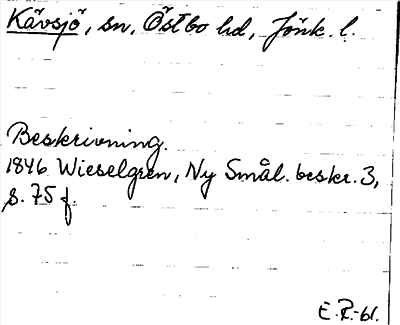 Kävsjö, sn, Östbo hd, Jönk. l.
Beskrivning.
1846 Wieselgren, Ny Smål. beskr. 3,
s. 75 f.
E.R.-61.